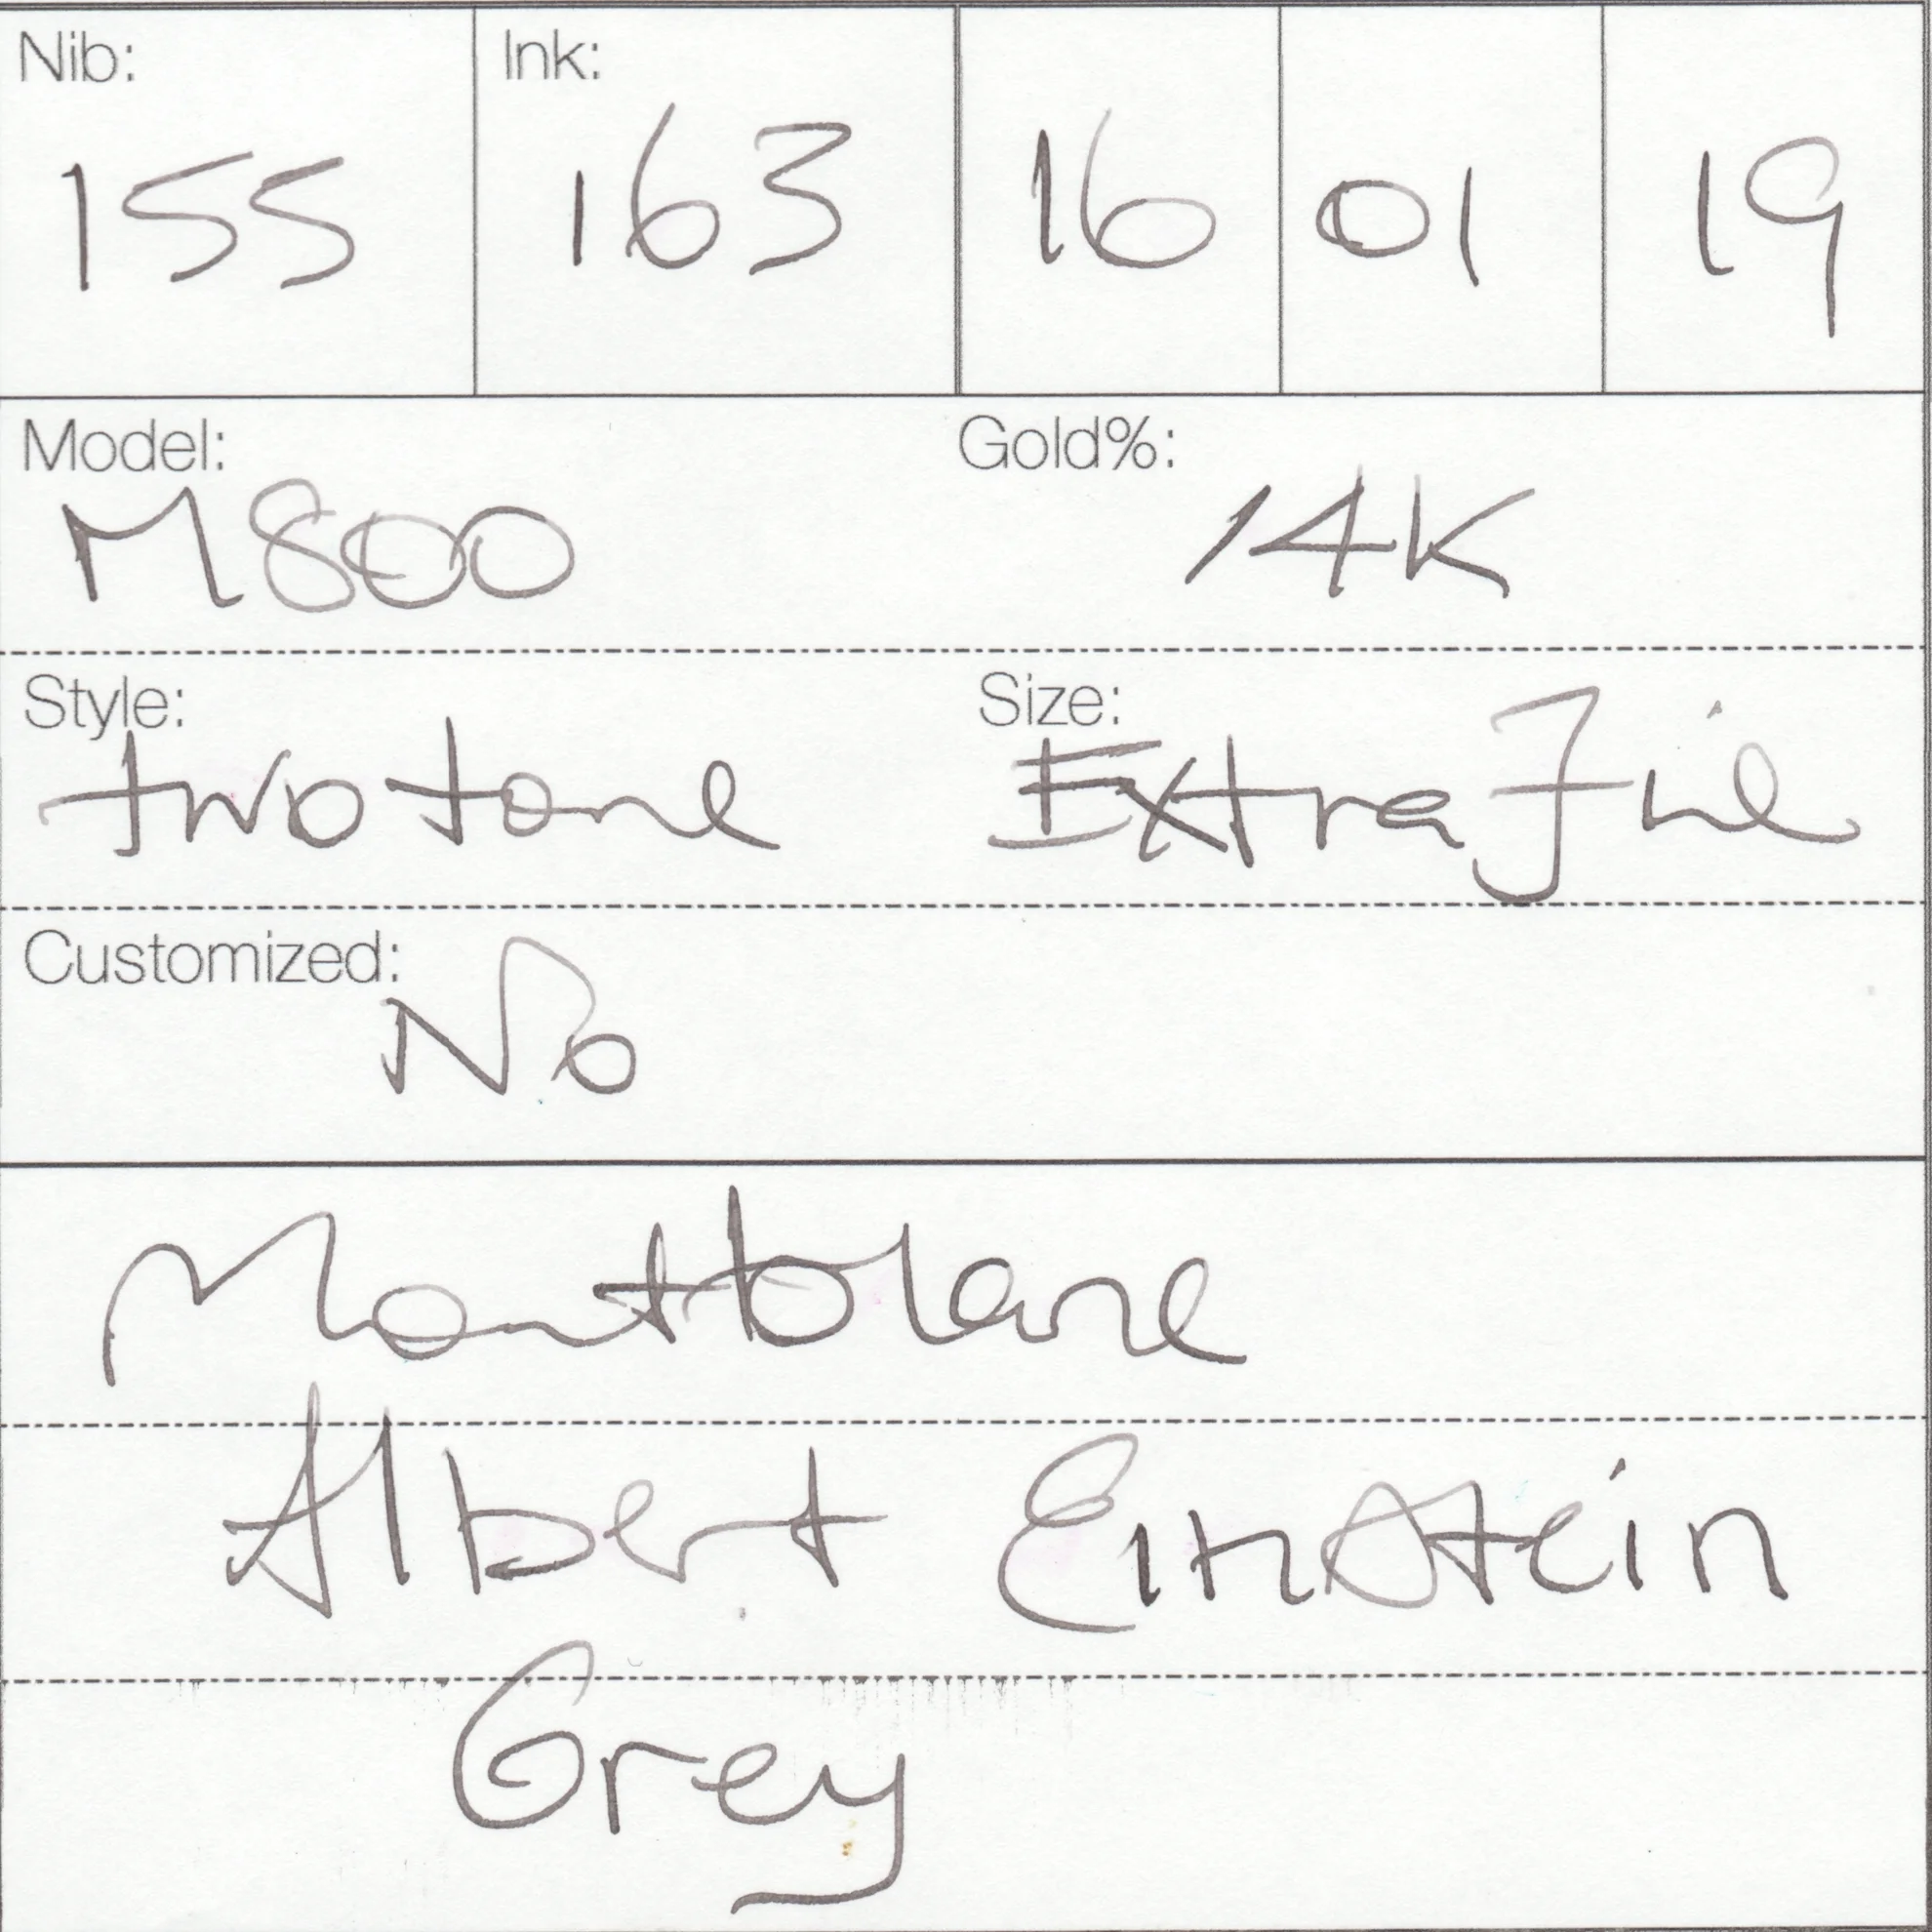 Nib: Ink:
155 163 16 01 19
Model: Gold%:
M800 14K
Style: Size:
two tone Extra Fine
Customized:
No
Montblanc
Albert Einstein
Grey